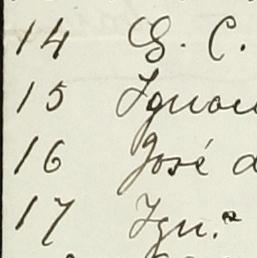 14 G. C.
15 Ignac
16 José d
17 Ign.º